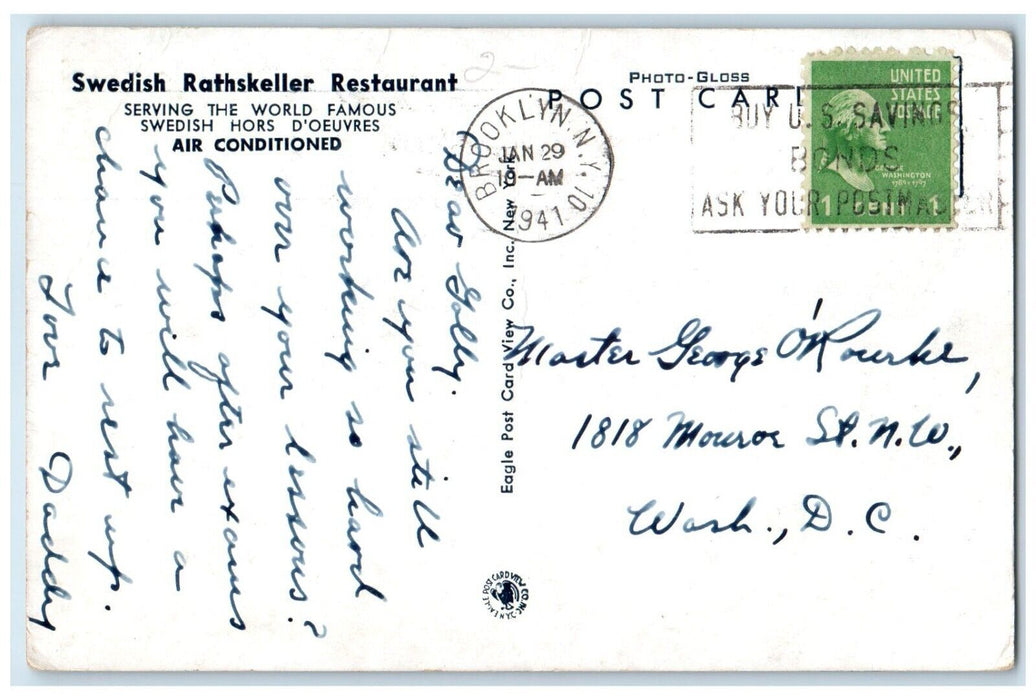 Swedish Rathskeller Restaurant
SERVING THE WORLD FAMOUS
SWEDISH HORS D'OEUVRES
AIR CONDITIONED
Dear
Are you still
working so hard
over your lessons?
Perhaps after exams
you will have a
chance to rest up.
Love
Daddy
Eagle Post Card View Co., Inc. New York
PHOTO-GLOSS
POST CAR
BROOKLYN, N.Y. 10
JAN 29
AM
1941
BUY U.S. SAVINGS
BONDS
ASK YOUR POSTMASTER
UNITED
STATES
POSTAGE
GEORGE
WASHINGTON
1789-1797
1 CENT 1
Master George O'Rourke,
1818 Monroe St. N.W.,
Wash., D.C.
EAGLE POST CARD VIEW CO. INC. N.Y.C.